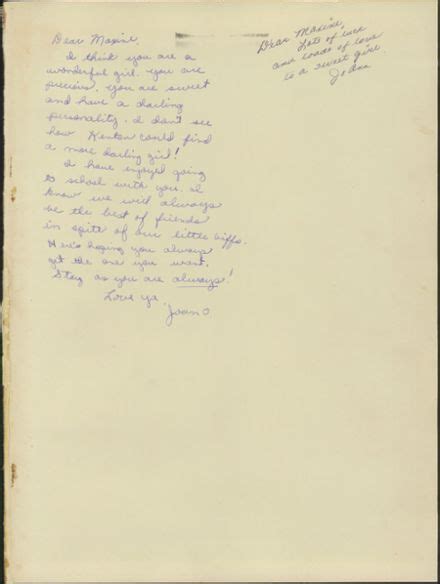 Dear Maxine,
I think you are a
wonderful girl. you are
precious. you are sweet
and have a darling
personality. I don't see
how Kenton could find
a more darling girl!
I have enjoyed going
to school with you. I
know we will always
be the best of friends
in spite of our little biffs.
Here's hoping you always
get the one you want.
Stay as you are always!
Love ya,
Joan O
Dear Maxine,
Lots of luck
and loads of love
to a sweet girl
Jo Ann